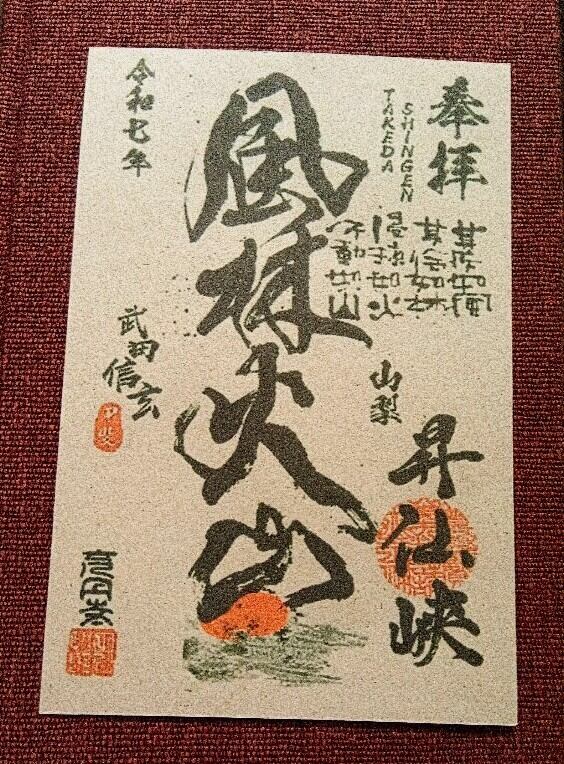 奉拝
SHINGEN
TAKEDA
其疾如風
其徐如林
侵掠如火
不動如山
山梨
昇仙峡
風林火山
令和七年
武田
信玄
甲斐